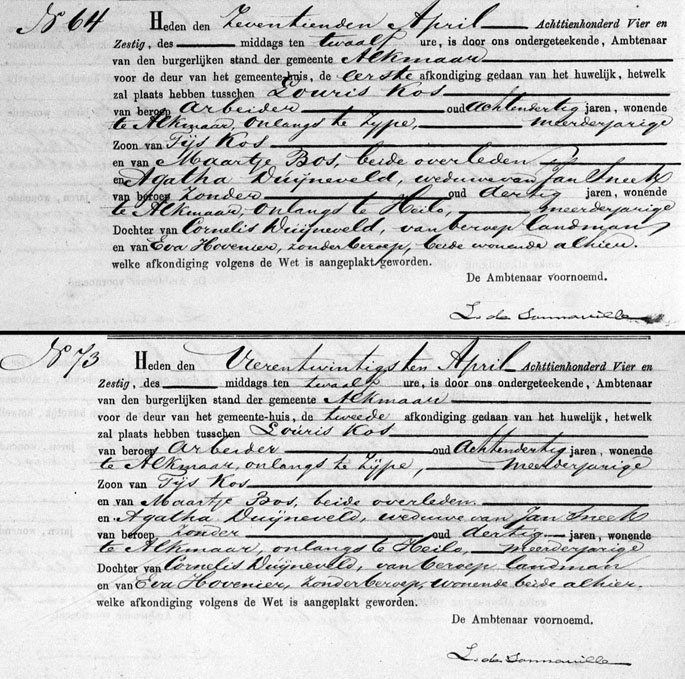 N 64
Heden den Zeventienden April Achttienhonderd Vier en
Zestig, des middags ten twaalf ure, is door ons ondergeteekende, Ambtenaar
van den burgerlijken stand der gemeente Alkmaar
voor de deur van het gemeente-huis, de eerste afkondiging gedaan van het huwelijk, hetwelk
zal plaats hebben tusschen Louris Kos
van beroep Arbeider oud achtendertig jaren, wonende
te Alkmaar, onlangs te Zype, meerderjarige
Zoon van Tijs Kos
en van Maartje Bos, beide overleden
en Agatha Duijneveld, weduwe van Jan Sneek
van beroep Zonder oud dertig jaren, wonende
te Alkmaar, onlangs te Heilo, meerderjarige
Dochter van Cornelis Duijneveld, van beroep landman
en van Eva Hovenier, zonder beroep, beide wonende alhier.
welke afkondiging volgens de Wet is aangeplakt geworden.
De Ambtenaar voornoemd.
L. de Sonnaville
N 73
Heden den Vierentwintigsten April Achttienhonderd Vier en
Zestig, des middags ten twaalf ure, is door ons ondergeteekende, Ambtenaar
van den burgerlijken stand der gemeente Alkmaar
voor de deur van het gemeente-huis, de tweede afkondiging gedaan van het huwelijk, hetwelk
zal plaats hebben tusschen Louris Kos
van beroep Arbeider oud Achtendertig jaren, wonende
te Alkmaar, onlangs te Zijpe, meerderjarige
Zoon van Tijs Kos
en van Maartje Bos, beide overleden
en Agatha Duijneveld, weduwe van Jan Sneek
van beroep Zonder oud dertig jaren, wonende
te Alkmaar, onlangs te Heilo, meerderjarige
Dochter van Cornelis Duijneveld, van beroep landman
en van Eva Hovenier, zonder beroep, wonende beide alhier.
welke afkondiging volgens de Wet is aangeplakt geworden.
De Ambtenaar voornoemd.
L. de Sonnaville